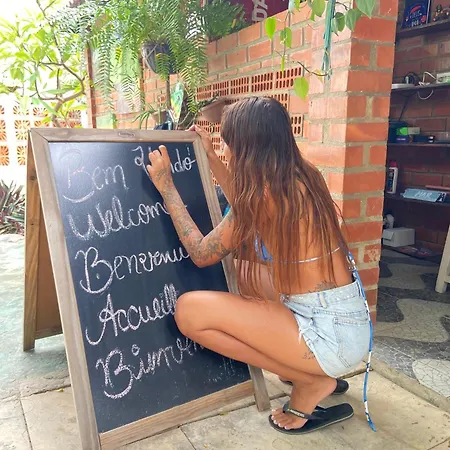 Bem Vindo
Welcome
Benvenu
Accueil
Bienve